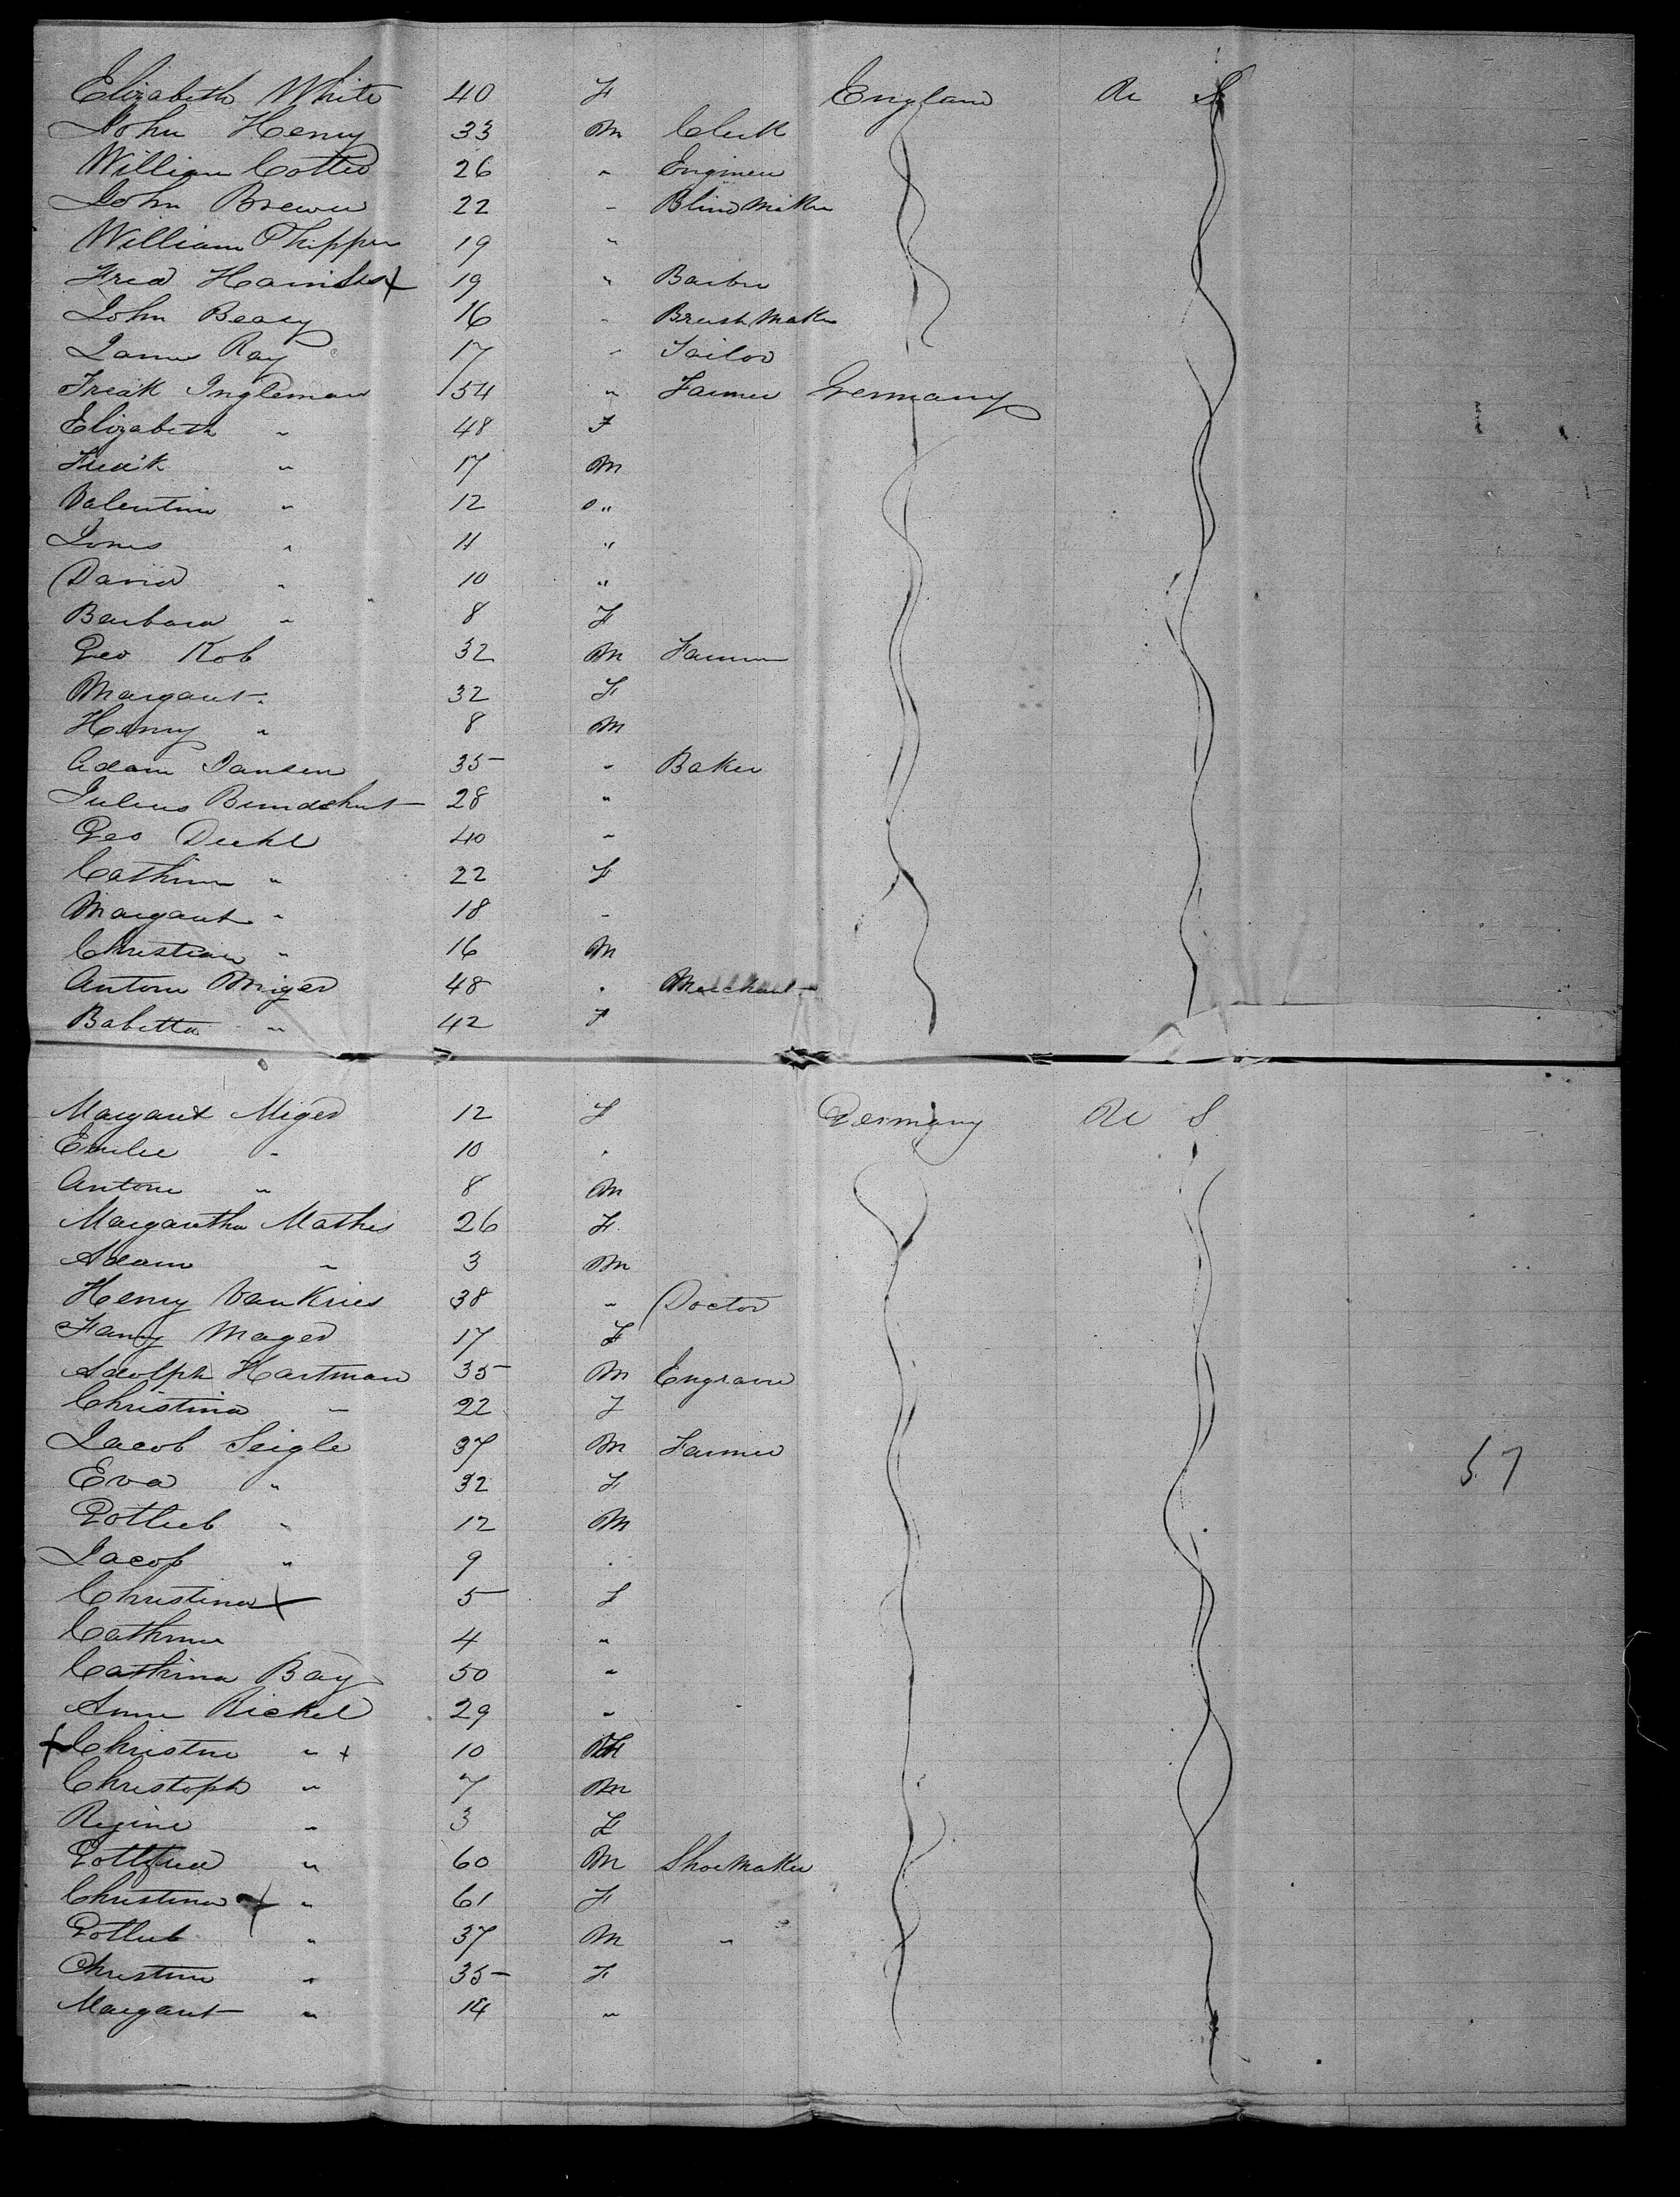 Elizabeth White 40 F England U S
John Henry 33 M Clerk
William Cotter 26 " Engineer
John Brewer 22 " Blind Maker
William Phipper 19 "
Fred 19 " Barber
John Beasy 16 " Brush Maker
James Ray 17 " Sailor
Fredk Ingleman 54 " Farmer Germany
Elizabeth " 48 F
Fredk " 17 M
Valentine " 12 "
" 11 "
David " 10 "
Barbara " 8 F
Geo Kob 32 M Farmer
Margaret " 32 F
Henry " 8 M
Adam Jansen 35 " Baker
Julius Bundshut 28 "
Geo Diehl 40 "
Cathrine " 22 F
Margaret " 18 "
Christian " 16 M
Antone Miger 48 " Merchant
Babetta " 42 F
Margaret Miger 12 F Germany U S
Emilie " 10 "
Antone " 8 M
Margaretha Mathes 26 F
Adam " 3 M
Henry Van Kries 38 " Doctor
Fany Mager 17 F
Adolph Hartman 35 M Engraver
Christina " 22 F
Jacob Seigle 37 M Farmer
57
Eva " 32 F
Gotlieb " 12 M
Jacob " 9 "
Christina + 5 F
Cathrine 4 "
Cathrina Bay 50 "
Anna Rickel 29 "
+ Christne " + 10 F
Christoph " 7 M
Regine " 3 F
Gottfried " 60 M Shoemaker
Christina + " 61 F
Gotlieb " 37 M "
Christine " 35 F
Margaret " 14 "